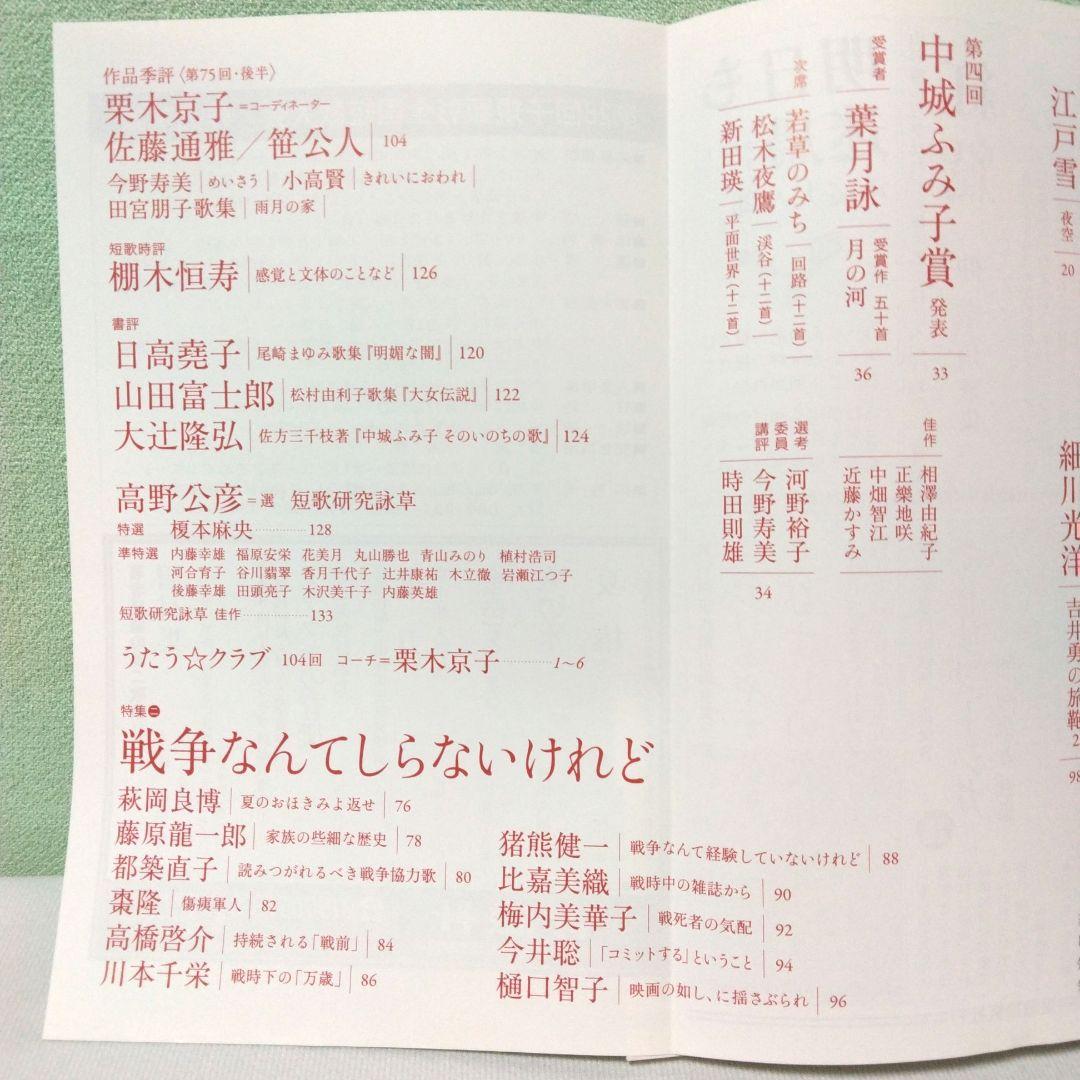 江戸雪 夜空 20
細川光洋 吉井勇の旅鞄
98
第四回
中城ふみ子賞 発表 33
受賞者
葉月詠 受賞作 五十首 月の河 36
次席
若草のみち 回路(十二首)
松木夜鷹 渓谷(十二首)
新田瑛 平面世界(十二首)
佳作
相澤由紀子
正樂地咲
中畑智江
近藤かすみ
選考委員講評
河野裕子
今野寿美
時田則雄
34
作品季評〈第75回・後半〉
栗木京子=コーディネーター
佐藤通雅/笹公人 104
今野寿美 めいさう 小高賢 きれいにおわれ
田宮朋子歌集 雨月の家
短歌時評
棚木恒寿 感覚と文体のことなど 126
書評
日高堯子 尾崎まゆみ歌集『明媚な闇』 120
山田富士郎 松村由利子歌集『大女伝説』 122
大辻隆弘 佐方三千枝著『中城ふみ子 そのいのちの歌』 124
高野公彦=選 短歌研究詠草
特選 榎本麻央…………128
準特選 内藤幸雄 福原安栄 花美月 丸山勝也 青山みのり 植村浩司
河合育子 谷川翡翠 香月千代子 辻井康祐 木立徹 岩瀬江つ子
後藤幸雄 田頭亮子 木沢美千子 内藤英雄
短歌研究詠草 佳作…………133
うたう☆クラブ 104回 コーチ=栗木京子…………1〜6
特集㊁
戦争なんてしらないけれど
萩岡良博 夏のおほきみよ返せ 76
藤原龍一郎 家族の些細な歴史 78
都築直子 読みつがれるべき戦争協力歌 80
棗隆 傷痍軍人 82
高橋啓介 持続される「戦前」 84
川本千栄 戦時下の「万歳」 86
猪熊健一 戦争なんて経験していないけれど 88
比嘉美織 戦時中の雑誌から 90
梅内美華子 戦死者の気配 92
今井聡 「コミットする」ということ 94
樋口智子 映画の如し、に揺さぶられ 96